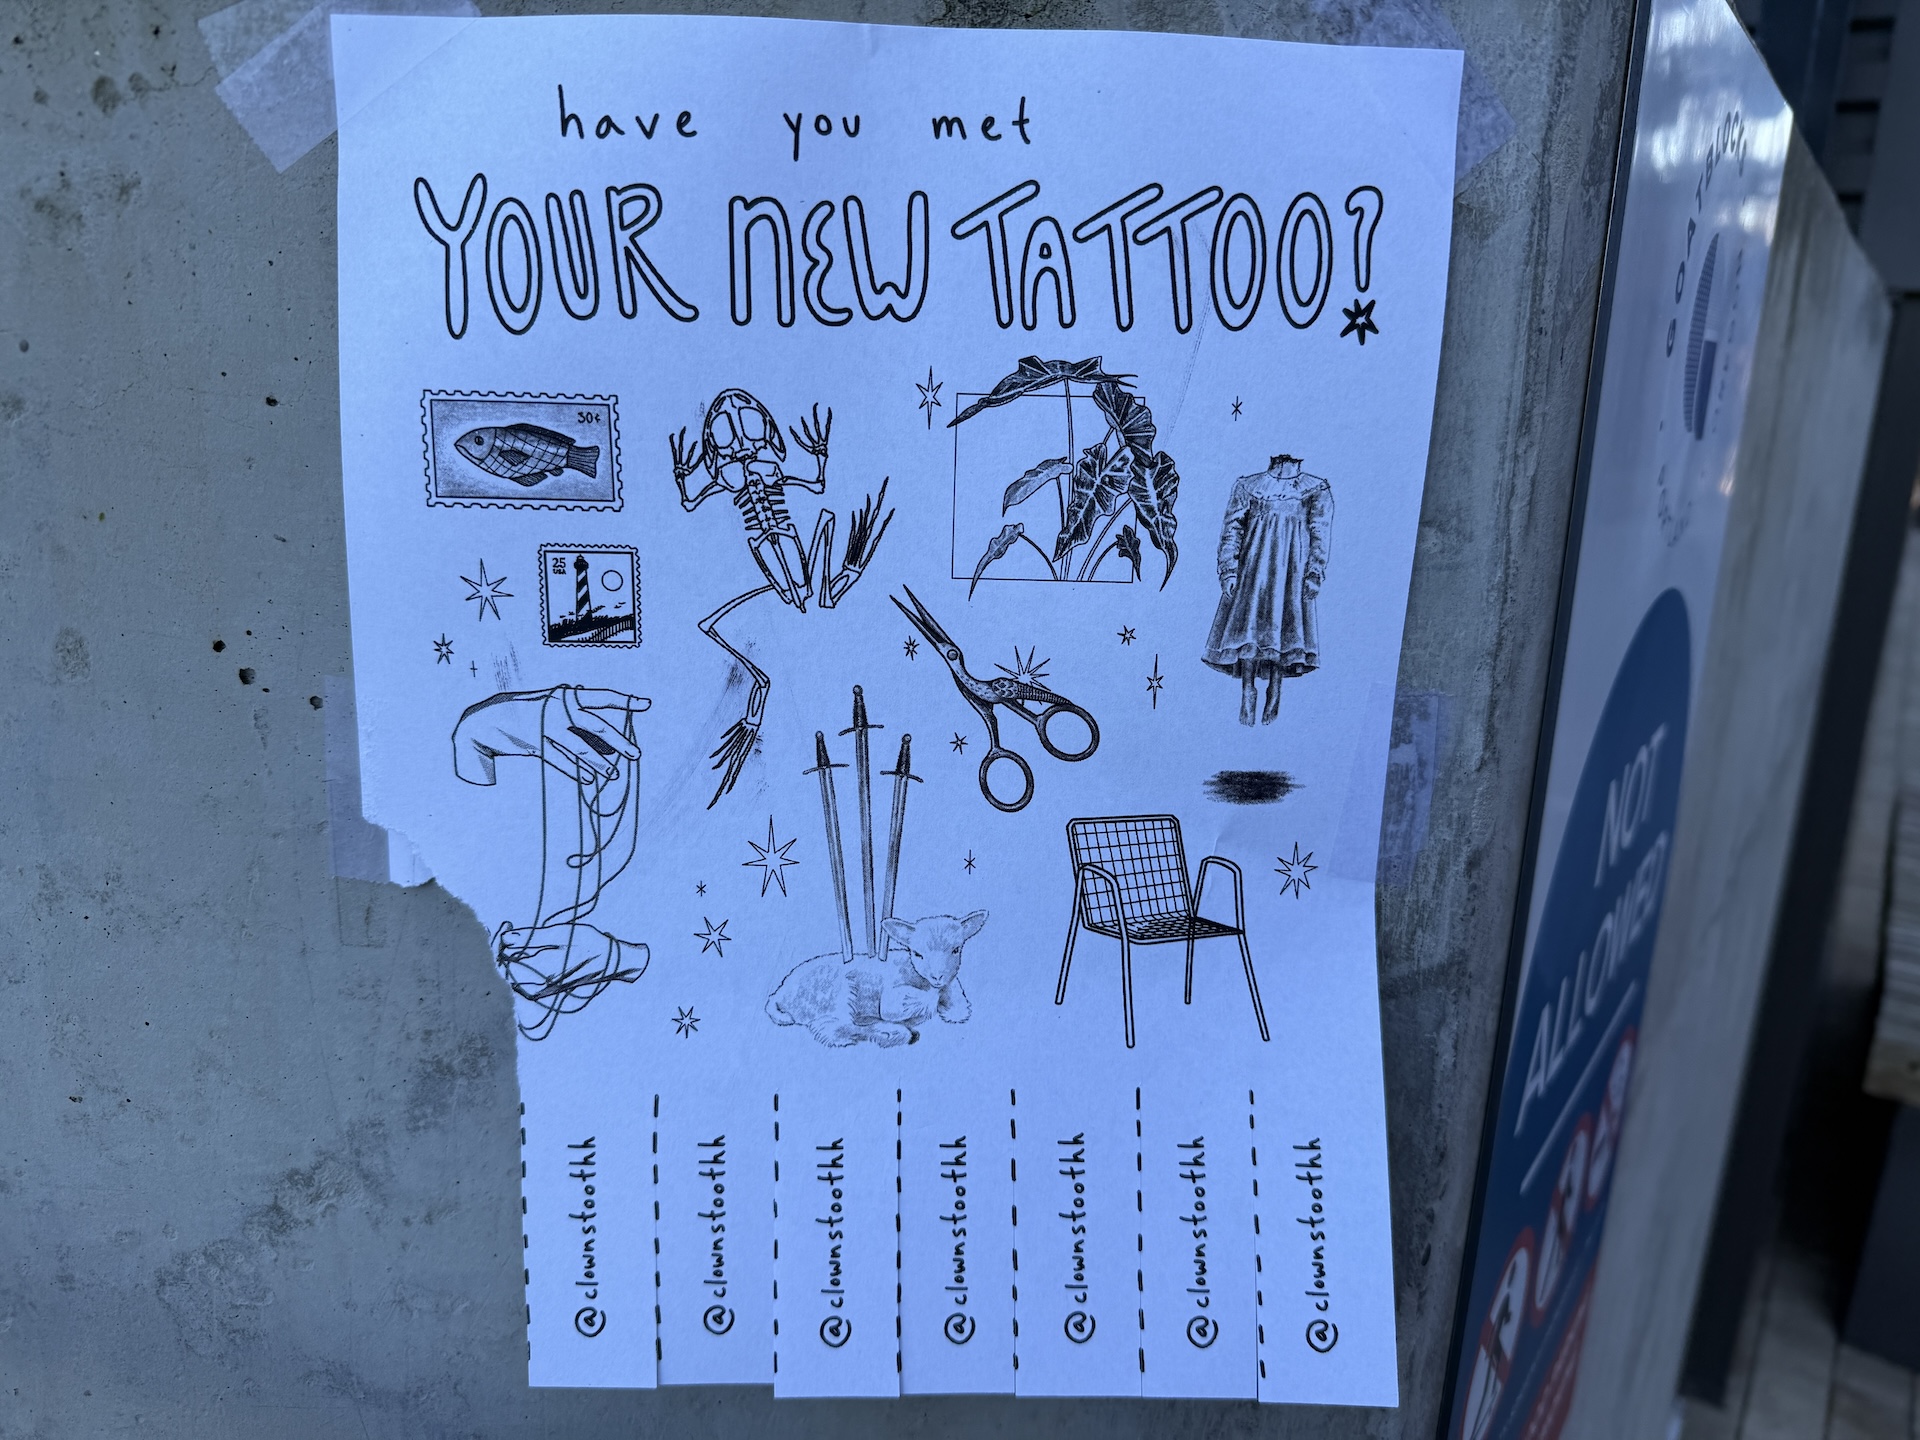 have you met
YOUR NEW TATTOO?
30¢
25
USA
@clownstoothh
@clownstoothh
@clownstoothh
@clownstoothh
@clownstoothh
@clownstoothh
@clownstoothh
GOATBLOCKS
NOT
ALLOWED